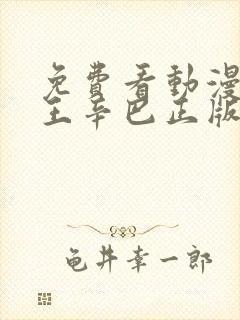 免費看動漫
王辛巴正版
龟井幸一郎